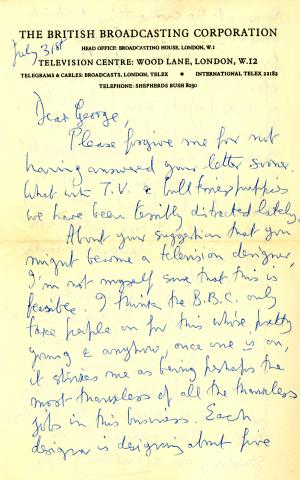 THE BRITISH BROADCASTING CORPORATION
HEAD OFFICE: BROADCASTING HOUSE, LONDON, W.1
TELEVISION CENTRE: WOOD LANE, LONDON, W.12
TELEGRAMS & CABLES: BROADCASTS, LONDON, TELEX * INTERNATIONAL TELEX 22182
TELEPHONE: SHEPHERDS BUSH 8030
July 31st
Dear George,
Please forgive me for not
having answered your letter sooner.
What with T.V. & bull terrier puppies
we have been terribly distracted lately.
About your suggestion that you
might become a television designer,
I'm not myself sure that this is
feasible. I think the B.B.C. only
take people on for this whilst pretty
young & anyhow, once one is on,
it strikes me as being perhaps the
most thankless of all the thankless
jobs in this business. Each
designer is designing about five